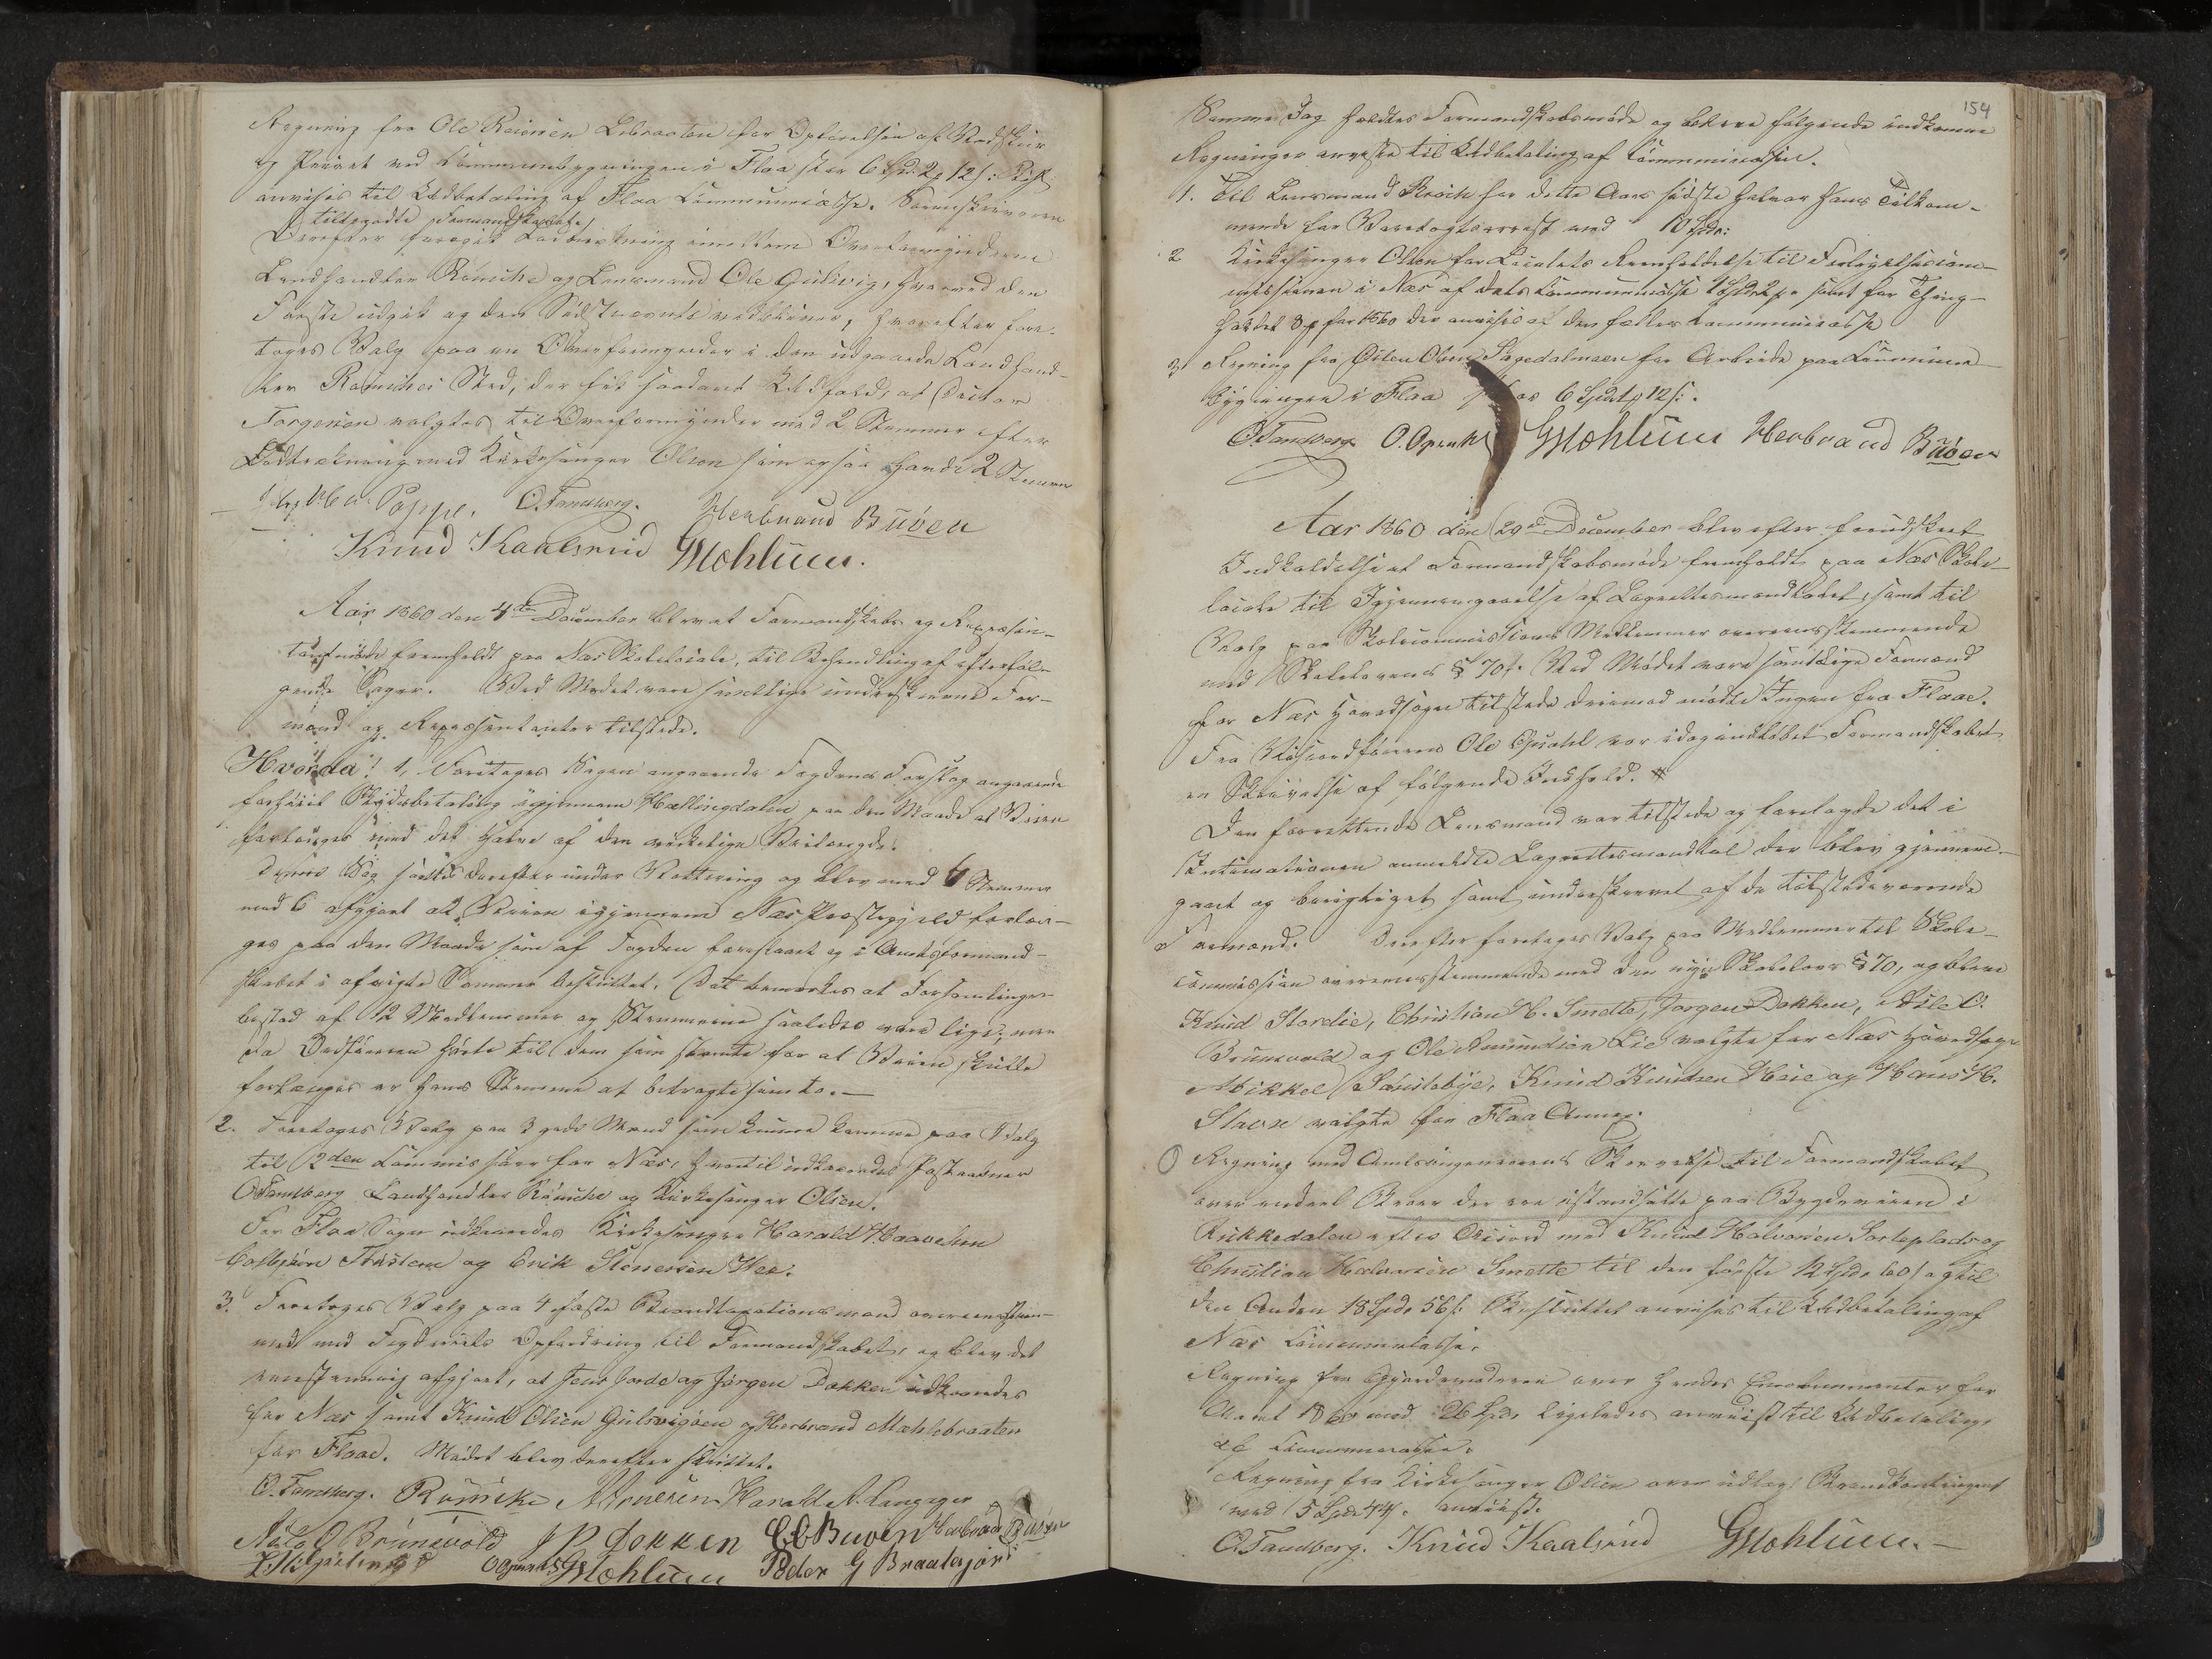 Regning fra Ole Reiersen Libraaten for Opførelsen af Vedskur
og Privet ved Communebygningen i Flaa stor 6 Spd. 2 12 s.
anvises til Udbetaling af Flaa Communecasse. Sorenskriveren
tilstede Formandskabet
Derefter foregik Lodtrækning imellem Overformynderne
Landhandler Römcke og Lensmand Ole Gulsvig, hvorved den
Første udgik og den Sidstnævnte vedbliver, hvorefter fore-
toges Valg paa en Overformynder i den udgaaede Landhand-
ler Römckes Sted, der fik saadant Udfald, at
Torgersen valgtes til Overformynder med 2 Stemmer efter
Lodtrækning med Kirkesanger Olsen som ogsaa havde 2 Stemmer
Poppe. O. Tandberg. Herbrand Büöen
Knud Kaalsrud GMohlum.
Aar 1860 den 4de December blev et Formandskabs og Repræsen-
tantmøde fremholdt paa Næs Skolelocale, til Behandling af efterføl-
gende Sager. Ved Mødet vare samtlige underskrevne For-
mænd og Repræsentanter tilstede.
Hvorda! 1, Foretoges Sagen angaaende Fogdens Forslag angaaende
forhøiet Skydsbetaling igjennem Hallingdalen paa den Maade at Veien
forlænges med det Halve af den virkelige Veilængde.
Denne Sag sattes derefter under Votering og blev med 6 Stemmer
mod 6 afgjort at Veien igjennem Næs Præstegjeld forlæn-
ges paa den Maade som af Fogden foreslaaet og i Amtsformand-
skabet i afvigte Sommer besluttet. Det bemærkes at Forsamlingen
bestod af 12 Medlemmer og Stemmerne saaledes vare lige, men
da Ordføreren hørte til dem som stemte for at Veien skulle
forlænges er hans Stemme at betragte som to.—
2. Foretoges Valg paa 3 gode Mænd som kunne komme paa Valg
til 2den Commissair for Næs, hvortil udkaaredes Postaabner
O Tandberg Landhandler Römcke og Kirkesanger Olsen.
For Flaa Sogn udkaaredes Kirkesanger Harald Haavelsen
Colbjörn Trústem og Erik Stenersen Hee.
3. Foretoges Valg paa 4 faste Brandtaxationsmænd overeenstem-
mende med Fogderiets Opfordring til Formandskabet, og blev det
eenstemmig afgjort, at Jens Jorde og Jörgen Dokken udkaaredes
for Næs samt Knud Olsen Gulsvigöen og Herbrand Mæhlebraaten
for Flaae. Mødet blev derefter sluttet.
O. Tandberg. Römcke Harald A. Langager
Nils O Brunsvold J P Dokken E E Buöen Herbrand Büöen
GMohlum Peder G Braatesjori
154
Samme Dag holdtes Formandskabsmøde og bleve følgende indkomne
Regninger anviste til Udbetaling af Communecassen.
1. Til Lensmand for dette Aars sidste Halvaar hans Tilkom-
mende for Varetægtsarrest med 10 Spd.
2 Kirkesanger Olsen for Localets Reenholdelse til Forligelsescom-
missionen i Næs af dets Communecasse 1 Spd. 2 samt for Thing-
holdet 3 for 1860 der anvises af den fælles Communecasse
3 Regning fra Østen Olsen Sagedalmoen for Arbeide paa Commune-
bygningen i Flaa stor 6 Spd. 12 s.
O. Tandberg O. Opsahl GMohlum Herbrand Büöen
Aar 1860 den 29de December blev efter foreudskeet
Indkaldelse et Formandskabsmøde fremholdt paa Næs Skole-
locale til Igjennemgaaelse af Lagrettesmandtallet, samt til
Valg paa Skolecommissions Medlemmer overeensstemmende
med Skolelovens § 70. Ved Mødet vare samtlige Formænd
for Næs Hovedsogn tilstede derimod mødte Ingen fra Flaae.
Fra Viceordføreren Ole Opsahl var idag indløbet Formandskabet
en Skrivelse af følgende Indhold.
Den forrettende Lensmand var tilstede og forelagde det i
Intimationen anmeldte Lagrettesmandtal der blev gjennem-
gaaet og berigtiget samt underskrevet af de tilstedeværende
Formænd. Derefter foretoges Valg paa Medlemmer til Skole-
commission overeensstemmende med den nye Skolelovs § 70, og bleve
Knud Stordie, Christian H. Smette, Jörgen Dokken, Nils O.
Brunsvold og Ole Amundsen Lie valgte for Næs Hovedsogn
Mikkel Knud Knudsen Heie og Hans H.
Stavn valgte for Flaa Annex.
Regning med Amtsingenieurens Skrivelse til Formandskabet
over endeel Broer der ere istandsatte paa Bygdeveien i
Rukkedalen efter Accord med Knud Halvorsen Sorteplads og
Christian Halvorsen Smette til den første 12 Spd. 60 s og til
den Anden 18 Spd. 56 s. Besluttet anvises til Udbetaling af
Næs Communekasse.
Regning fra Gjordemoderen over hendes Emolumenter for
Aaret 1860 med 26 Spd. ligeledes anviist til Udbetaling
af Communecassen.
Regning fra Kirkesanger Olsen over udlagt Brandkontingent
med 5 Spd. 44 s. anviist.
O. Tandberg. Knud Kaalsrud GMohlum.—